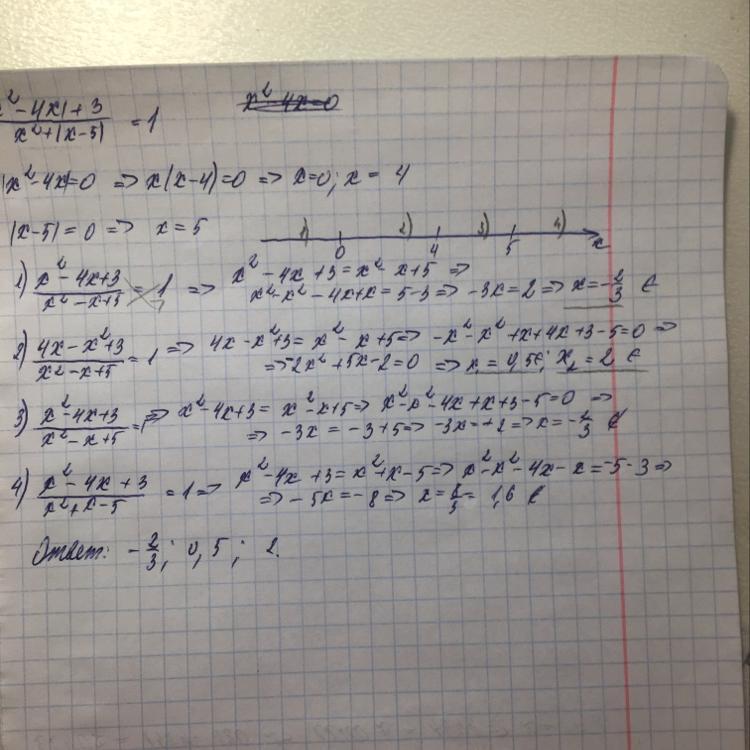 x² - 4x| + 3 / x² + |x - 5| = 1
x² - 4x = 0
|x² - 4x| = 0 => x(x - 4) = 0 => x = 0; x = 4
|x - 5| = 0 => x = 5
1) 2) 3) 4)
0 4 5 x
1) x² - 4x + 3 / x² - x + 5 = 1 => x² - 4x + 3 = x² - x + 5 =>
x² - x² - 4x + x = 5 - 3 => -3x = 2 => x = -2/3 ∈
2) 4x - x² + 3 / x² - x + 5 = 1 => 4x - x² + 3 = x² - x + 5 => -x² - x² + x + 4x + 3 - 5 = 0 =>
=> -2x² + 5x - 2 = 0 => x₁ = 0,5 ∈; x₂ = 2 ∈
3) x² - 4x + 3 / x² - x + 5 = 1 => x² - 4x + 3 = x² - x + 5 => x² - x² - 4x + x + 3 - 5 = 0 =>
=> -3x = -3 + 5 => -3x = +2 => x = -2/3 ∉
4) x² - 4x + 3 / x² + x - 5 = 1 => x² - 4x + 3 = x² + x - 5 => x² - x² - 4x - x = -5 - 3 =>
=> -5x = -8 => x = 8/5 = 1,6
Ответ: -2/3; 0,5; 2.